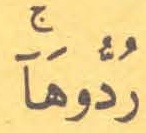 رُدُّوهَآۚ